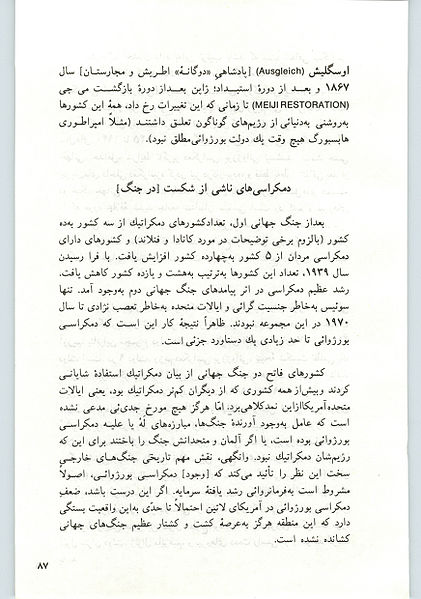 اوسگلیش (Ausgleich) [پادشاهیِ «دوگانهٔ» اطریش و مجارستان] سال
۱۸۶۷ و بعد از دورهٔ استبداد؛ ژاپن بعداز دورهٔ بازگشت می جی
(MEIJI RESTORATION) تا زمانی که این تغییرات رخ داد، همهٔ این کشورها
به‌روشنی به‌دنیائی از رژیم‌های گوناگون تعلق داشتند (مثلاً امپراطوری
هاپسبورگ هیچ وقت یك دولت بورژوائیِ مطلق نبود).
دمکراسی‌های ناشی از شکست [در جنگ]
بعداز جنگ جهانی اول، تعدادکشورهای دمکراتیك از سه کشور به‌ده
کشور (بالزوم برخی توضیحات در مورد کانادا و فنلاند) و کشورهای دارای
دمکراسی مردان از ۵ کشور به‌چهارده کشور افزایش یافت. با فرا رسیدن
سال ۱۹۳۹، تعداد این کشورها به‌ترتیب به‌هشت و یازده کشور کاهش یافت.
رشد عظیم دمکراسی در اثر پیامدهای جنگ جهانی دوم به‌وجود آمد. تنها
سوئیس به‌خاطر جنسیت گرائی و ایالات متحده به‌خاطر تعصب نژادی تا سال
۱۹۷۰ در این مجموعه نبودند. ظاهراً نتیجهٔ کار این است که دمکراسی
بورژوائی تا حد زیادی یك دستاورد جزئی است.
کشورهای فاتح دو جنگ جهانی از بیان دمکراتیك استفادهٔ شایانی
کردند وبیش‌از همه کشوری که از دیگران کم‌تر دمکراتیك بود، یعنی ایالات
متحده‌آمریکاازاین نمدکلاهی‌برد. امّا هرگز هیچ مورخ جدی‌ئی مدعی نشده
است که عامل به‌وجود آورندهٔ جنگ‌ها، مبارزه‌های لَهٔ یا علیه دمکراسی
بورژوائی بوده است، یا اگر آلمان و متحدانش جنگ را باختند برای این که
رژیم‌شان دمکراتیك نبود. وانگهی، نقش مهم تاریخی جنگ‌های خارجی
سخت این نظر را تأئید می‌کند که [وجود] دمکراسی بورژوائی، اصولاً
مشروط است به‌فرمانروائی رشد یافتهٔ سرمایه. اگر این درست باشد، ضعفِ
دمکراسی بورژوائی در آمریکای لاتین احتمالاً تا حدّی به‌این واقعیت بستگی
دارد که این منطقه هرگز به‌عرصهٔ کشت و کشتار عظیم جنگ‌های جهانی
کشانده نشده است.
۸۷